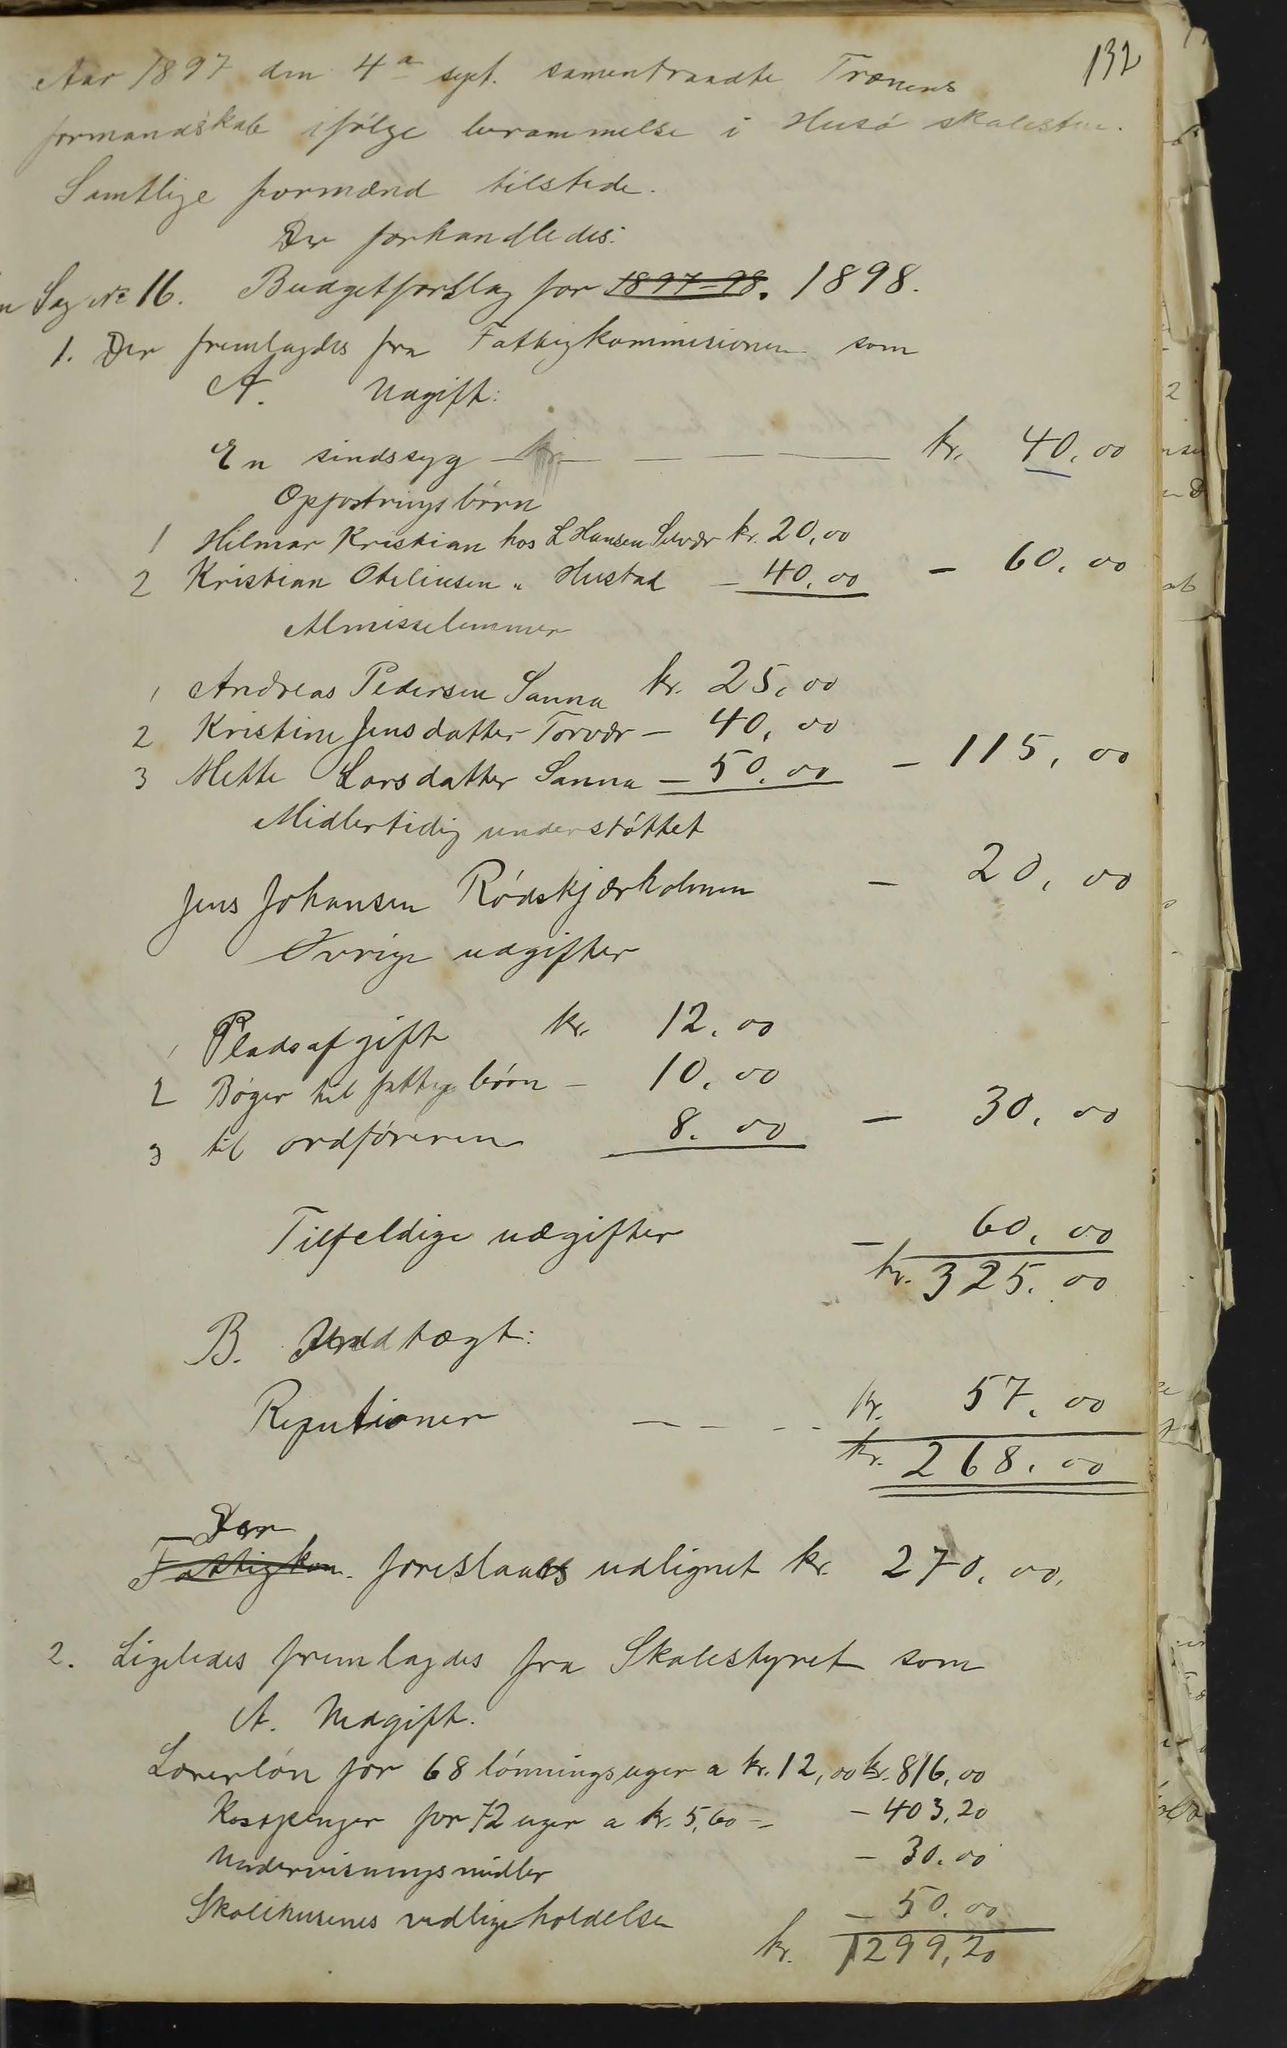 132
Aar 1897 den 4de sept. sammentraadte Trænens
formandskab ifølge berammelse i Husø skolestue.
Samtlige formænd tilstede.
Der forhandledes:
Sag No 16. Budgetforslag for 1897-98. 1898.
1. Der fremlagdes fra Fattigkommisionen som
A. Udgift:
En sindssyg kr. — — — kr. 40,00
Opfostringsbörn
1 Hilmar Kristian hos L Hansen Selvær kr. 20,00
2 Kristian Oteliusen " Hustad — 40,00 — 60,00
Almisselemmer
1 Andreas Pedersen Sanna kr. 25,00
2 Kristine Jensdatter Torvær — 40,00
3 Mette Larsdatter Sanna — 50,00 — 115,00
Midlertidig understøttet
Jens Johansen Rødskjærholmen — 20,00
Øvrige udgifter
1 Pladsafgift kr. 12,00
2 Bøger til fattige börn — 10,00
3 til ordføreren 8,00 — 30,00
Tilfeldige udgifter — 60,00
kr. 325,00
B. Inddtægt:
Reputioner — — — kr. 57,00
kr. 268,00
Der
Fattigkom. foreslaaes udlignet kr. 270,00.
2. Ligeledes fremlagdes fra Skolestyret som
A. Udgift.
Lærerløn for 68 lønningsuger a kr. 12,00 kr. 816,00
Kostpenger for 72 uger a kr. 5,60 — — 403,20
Undervisningsmidler — 30,00
Skolehusenes vedligeholdelse — 50,00
kr. 1299,20